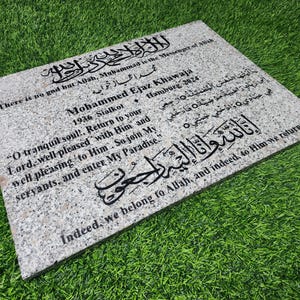 لا إله إلا الله محمد رسول الله
There is no god but Allah, Muhammad is the Messenger of Allah
محمد اعجاز خواجہ
Mohammed Ejaz Khawaja
1936 Sialkot • Homburg 2021
"O tranquil soul! Return to your
Lord, well-pleased with Him and
well-pleasing to Him. So join My
servants, and enter My Paradise."
إنا لله وإنا إليه راجعون
Indeed, we belong to Allah, and indeed, to Him we return